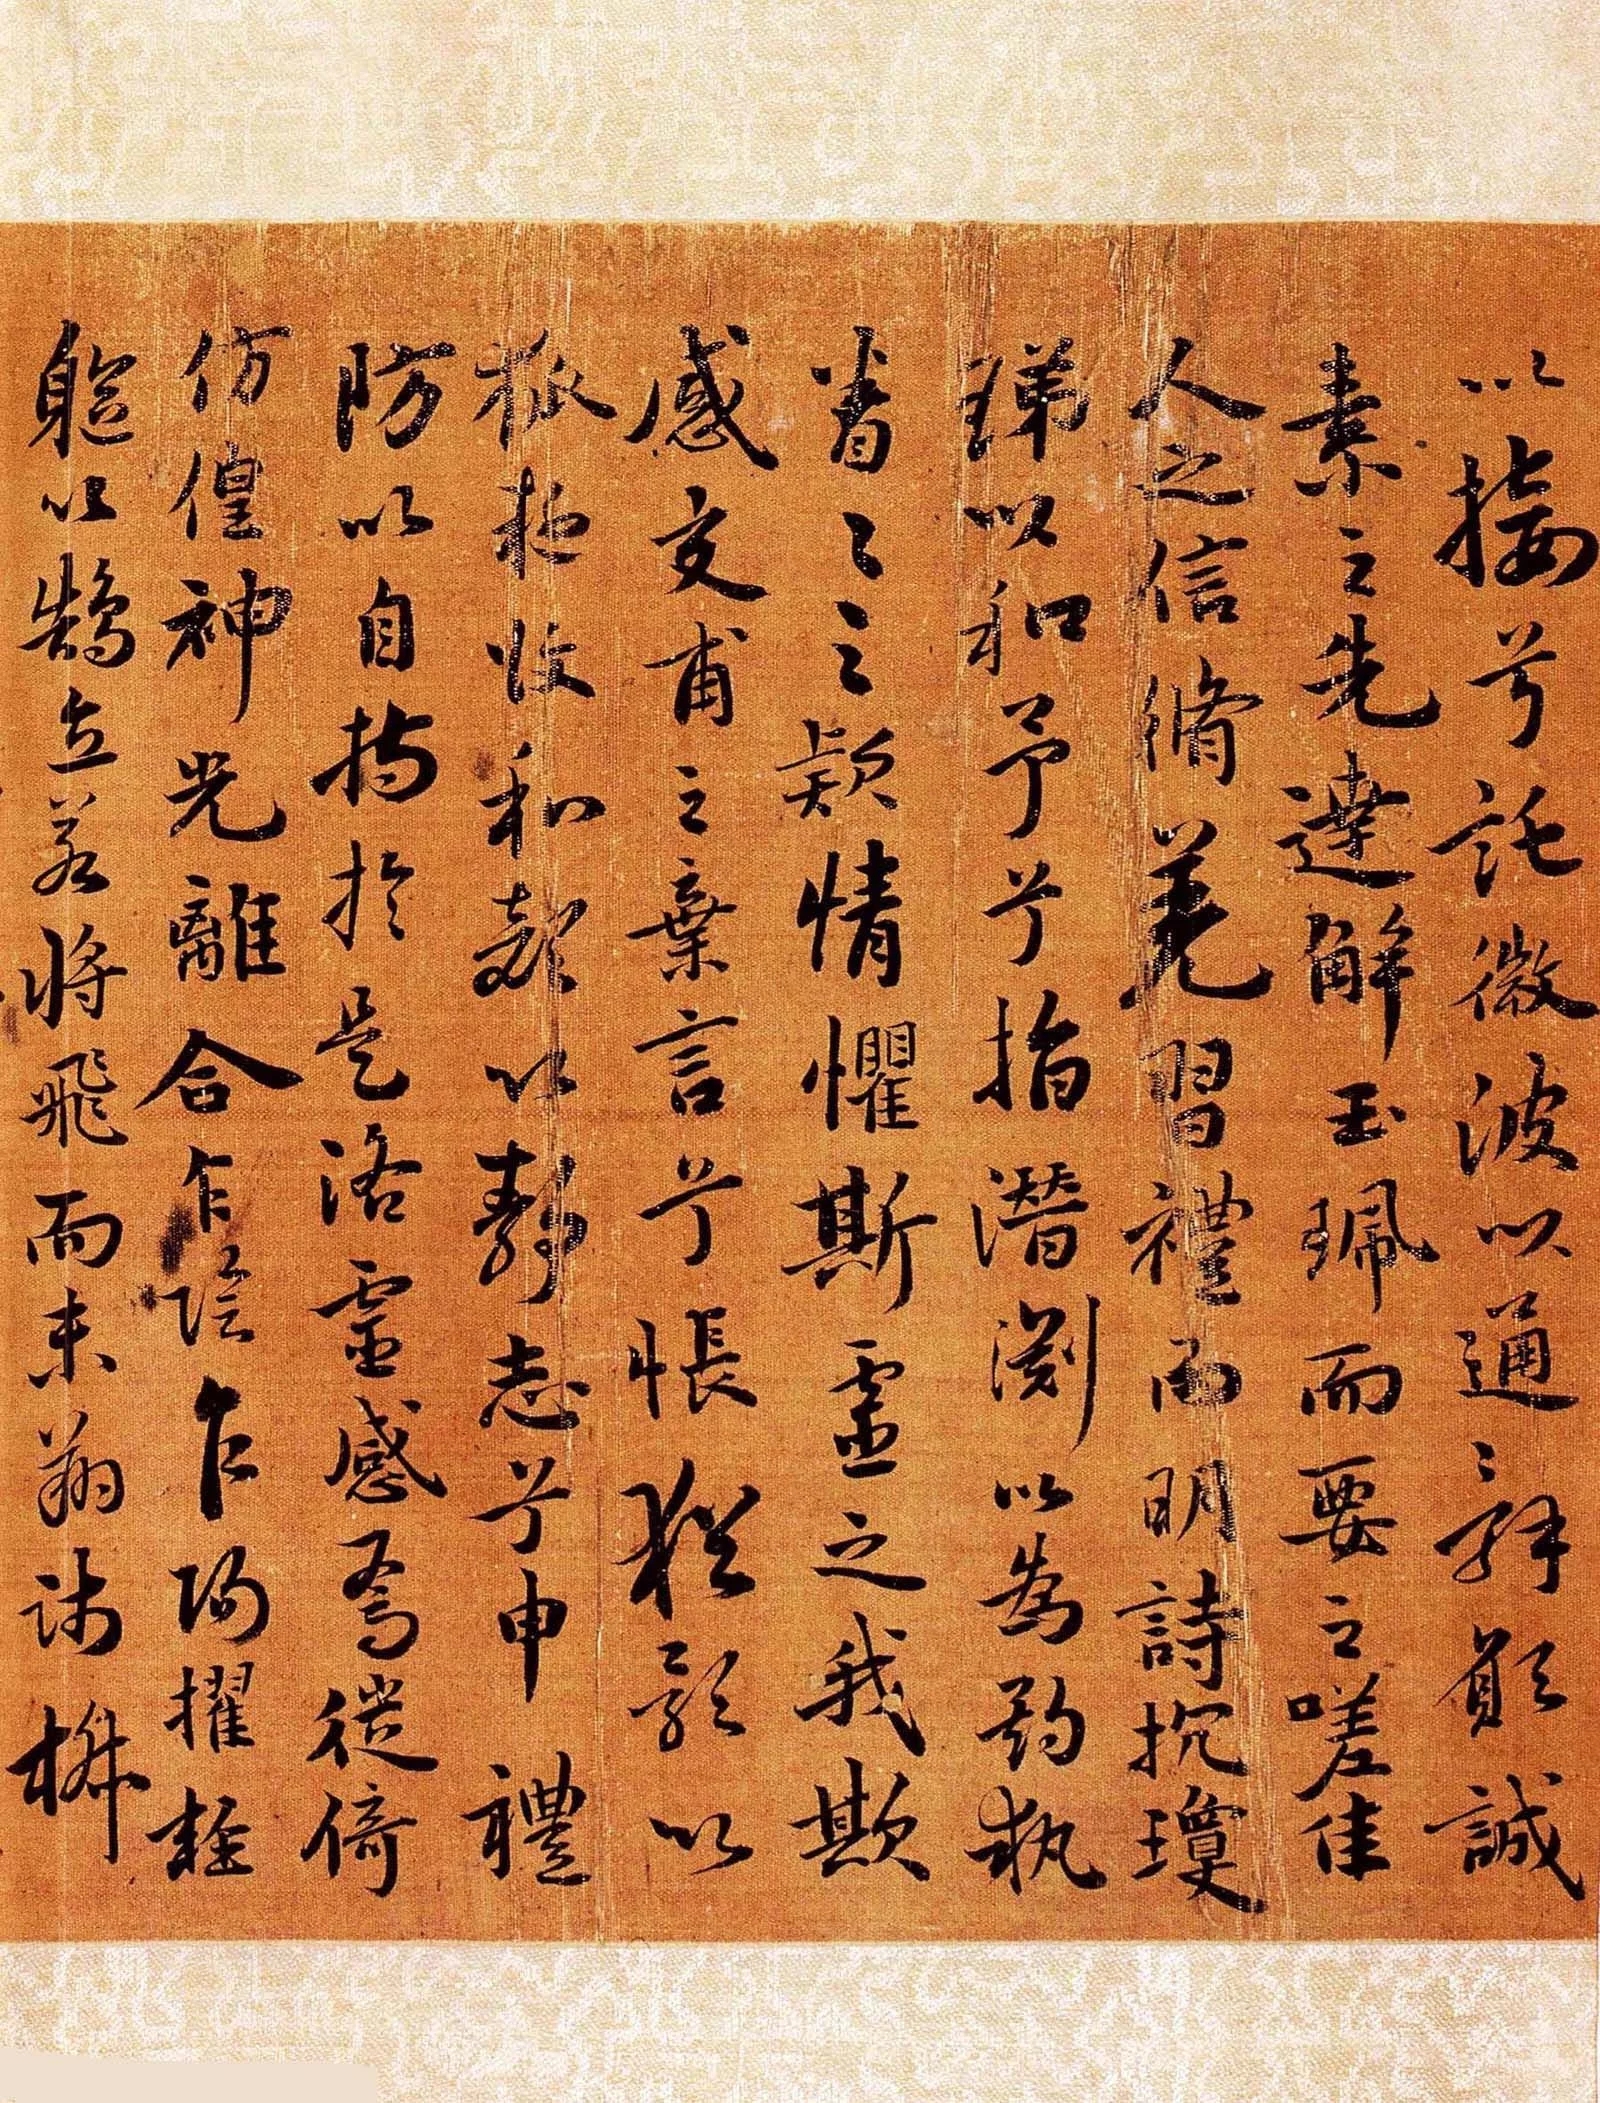 以接兮託微波以通辭願誠
素之先達解玉珮而要之嗟佳
人之信脩羌習禮而明詩抗瓊
珶以和予兮指潛渕以為期執
眷〻之欵情懼斯靈之我欺
感交甫之棄言兮悵猶豫以
狐疑收和顏以靜志兮申禮
防以自持於是洛靈感焉徙倚
仿偟神光離合乍陰乍陽擢輕
軀以鶴立若將飛而未翔踐椒